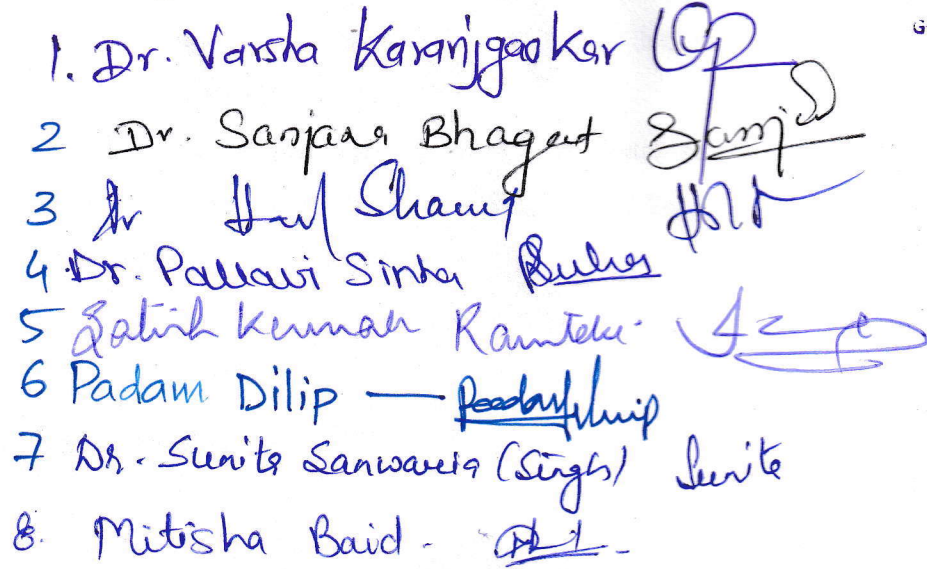 1. Dr. Varsha Karanjgaokar
2 Dr. Sanjana Bhagat Sanj
3 Dr
4. Dr. Pallavi Sinha
5 Satish Kumar Ramteke
6 Padam Dilip — Padam Dilip
7 Dr. Sunita Sanwaria (Singh) Sunita
8. Mitisha Baid -
G